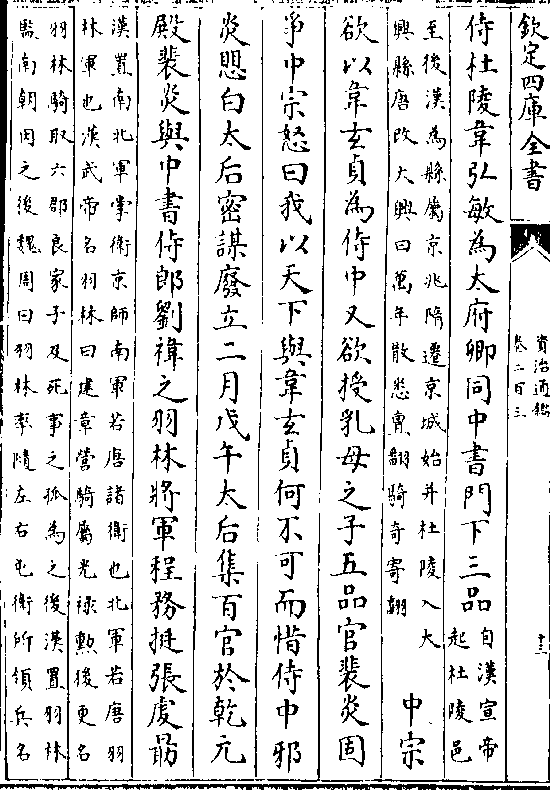 欽定四庫全書
資治通鑑
卷二百三
十三
侍杜陵韋弘敏為太府卿同中書門下三品自漢宣帝
起杜陵邑
至後漢為縣屬京兆隋遷京城始并杜陵入大
興縣唐改大興曰萬年散悉亶翻騎奇寄翻
中宗
欲以韋玄貞為侍中又欲授乳母之子五品官裴炎固
爭中宗怒曰我以天下與韋玄貞何不可而惜侍中邪
炎愳白太后密謀廢立二月戊午太后集百官於乾元
殿裴炎與中書侍郎劉禕之羽林將軍程務挺張虔朂
漢置南北軍掌衛京師南軍若唐諸衛也北軍若唐羽
林軍也漢武帝名羽林曰建章營騎屬光祿勲後更名
羽林騎取六郡良家子及死事之孤為之後漢置羽林
監南朝因之後魏周曰羽林率隋左右屯衛所領兵名